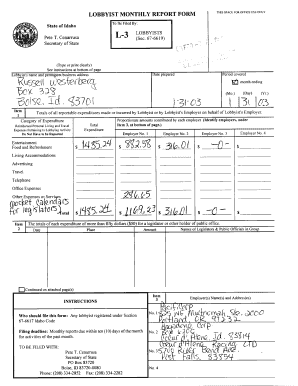 LOBBYIST MONTHLY REPORT FORM
THIS SPACE FOR OFFICE USE ONLY
State of Idaho
Pete T. Cenarrusa
Secretary of State
To Be Filed By:
L-3
LOBBYISTS
(Sec. 67-6619)
(Type or print clearly)
See instructions at bottom of page
Lobbyist's name and permanent business address
Date prepared
Period covered
Russell Westerberg
Box 328
Boise, Id. 83701
1-31-03
month ending
(Mo.) (Day) (Yr.)
1 31 03
Item 1
Totals of all reportable expenditures made or incurred by Lobbyist or by Lobbyist's Employer on behalf of Lobbyist's Employer.
Category of Expenditure
Total Expenditure
Employer No. 1
Employer No. 2
Employer No. 3
Employer No. 4
Entertainment
Food and Refreshment
$ 1485.24
$ 316.01
$ -0-
$
Living Accommodations
Advertising
Travel
Telephone
Office Expenses
Other Expenses or Services
Pocket Calendars
for legislators
286.65
Total
$ 1485.24
$ 1169.23
$ 316.01
$ -0-
$
Item 2
The totals of each expenditure of more than fifty dollars ($50) for a legislator or other holder of public office.
Date
Place
Amount
Names of Legislators & Public Officials in Group
Continued on attached page(s)
INSTRUCTIONS
Who should file this form: Any lobbyist registered under Section
67-6617 Idaho Code
Filing deadline: Monthly reports due within ten (10) days of the month
for activities of the past month.
TO BE FILED WITH:
Pete T. Cenarrusa
Secretary of State
PO Box 83720
Boise, ID 83720-0080
Phone: (208) 334-2852 Fax: (208) 334-2282
Item 3
Employer(s) Name(s) and Address(es)
No. 1
PacifiCorp
825 NE Multnomah Ste. 2000
Portland, OR 97232
No. 2
Box 6200
Coeur d'Alene, Id. 83814
No. 3
Coeur d'Alene Racing LTD
Post Falls, 83854
No. 4